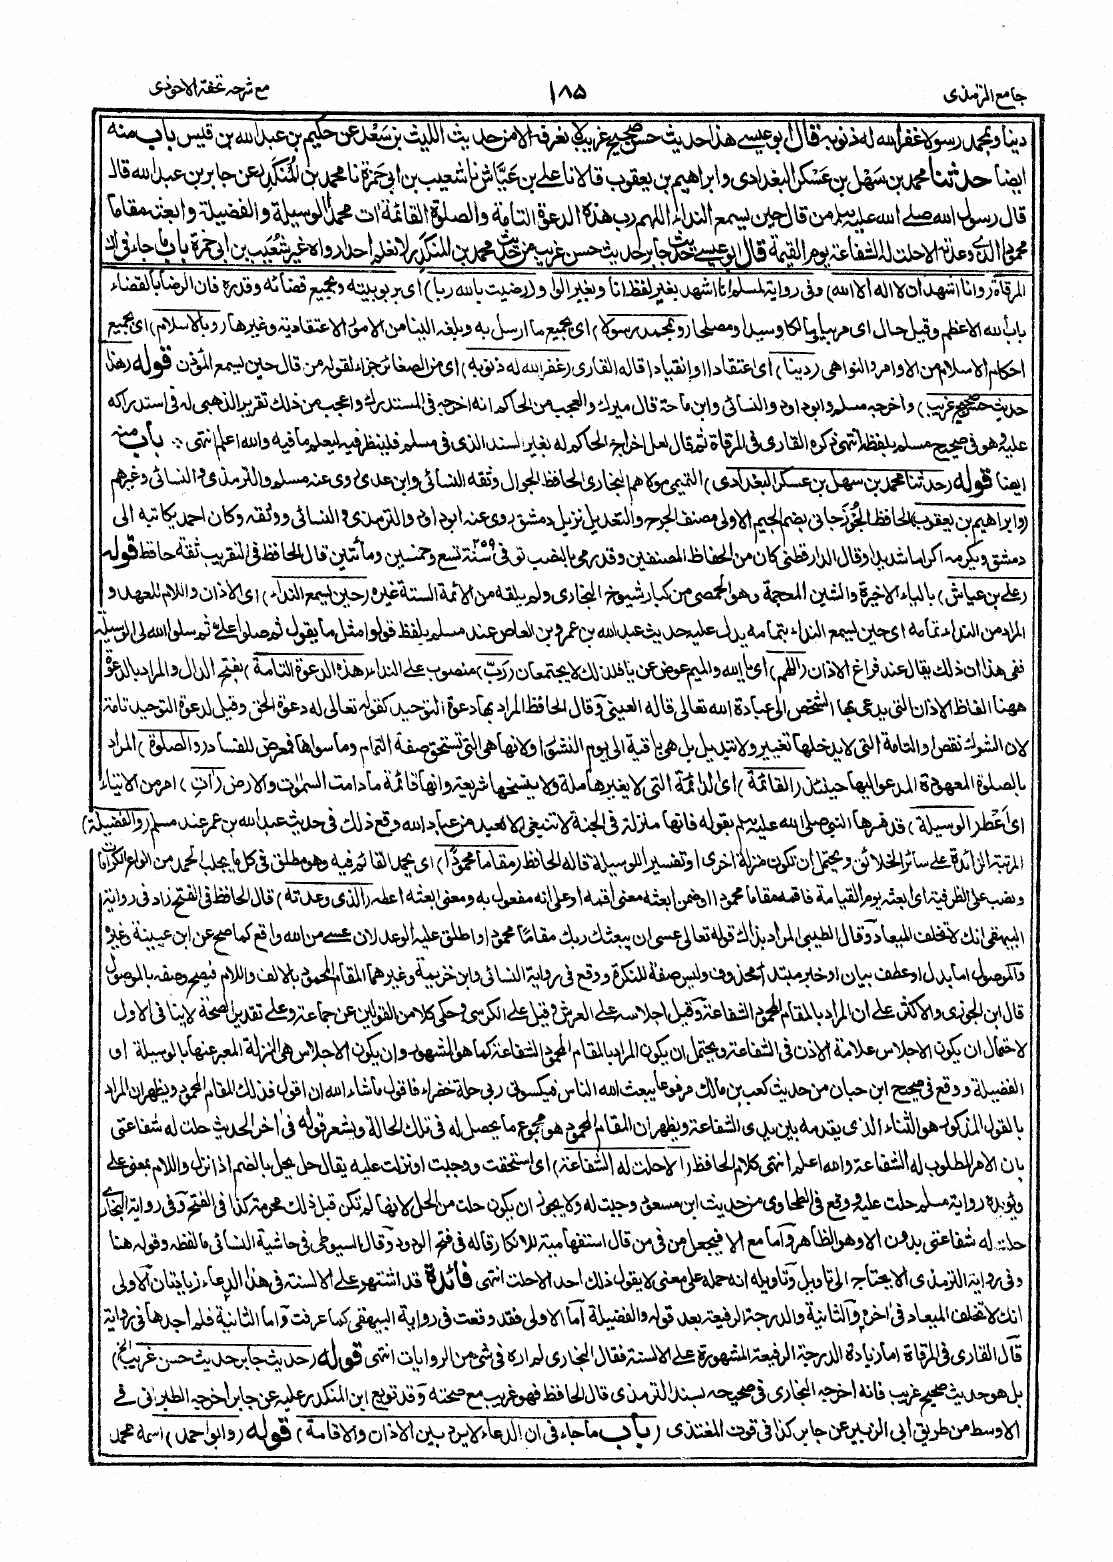 جامع الترمذى
١٨٥
مع شرحه تحفة الاحوذى
دينا وبمحمد رسولا غفر الله له ذنوبه قال ابو عيسے هذا حديث حسن صحيح غريب لا نعرفه الا من حديث الليث بن سَعْد عن حكيم بن عبد الله بن قيس باب منه
ايضا حدثنا محمد بن سهل بن عسكر البغدادى وابراهيم بن يعقوب قالا نا على بن عَيَّاش نا شعيب بن ابى حمزة نا محمد بن المُنْكَدِر عن جابر بن عبد الله قال
قال رسول الله صلے الله عليه وسلم من قال حين يسمع النداء اللهم رب هذه الدعوة التامة والصلوة القائمة ات محمدا الوسيلة والفضيلة وابعثه مقاما
محمودا الذى وعدته الا حلت له الشفاعة يوم القيمة قال ابو عيسے حديث جابر حديث حسن غريب من حديث محمد بن المنكدر لا نعلم احدا رواه غير شُعَيب بن ابى حمزة باب ما جاء فى ان
المرقاة (وانا اشهد ان لا اله الا الله) وفى رواية لمسلم انا اشهد بغير لفظ انا وبغير الواو (رضيت بالله ربا) اى بربوبيته وبجميع قضائه وقدره فان الرضا بالقضاء
باب الله الاعظم وقيل حال اى مربيا ومالكا وسيدا ومصلحا (وبمحمد رسولا) اى بجميع ما ارسل به وبلغه الينا من الامور الاعتقادية وغيرها (وبالاسلام) اى بجميع
احكام الاسلام من الاوامر والنواهى (دينا) اى اعتقادا او انقيادا قاله القارى (غفر الله له ذنوبه) اى من الصغائر جزاء لقوله من قال حين يسمع المؤذن قوله (هذا
حديث حسن صحيح غريب) واخرجه مسلم وابو داود والنسائى وابن ماجة قال ميرك والعجب من الحاكم انه اخرجه فى المستدرك واعجب من ذلك تقرير الذهبى له فى استدراكه
عليه وهو فى صحيح مسلم بلفظه انتهى ذكره القارى فى المرقاة ثم قال لعل اخراج الحاكم له بغير السند الذى فى مسلم فلينظر فيه ليعلم ما فيه والله اعلم انتهى باب منه
ايضا قوله (حدثنا محمد بن سهل بن عسكر البغدادى) التميمى مولاهم البخارى الحافظ الجوال وثقه النسائى وابن عدى روى عنه مسلم والترمذى والنسائى وغيرهم
(وابراهيم بن يعقوب) الحافظ الجُوزجانى بضم الجيم الاولى مصنف الجرح والتعديل نزيل دمشق روى عنه ابو داود والترمذى والنسائى ووثقه وكان احمد يكاتبه الى
دمشق ويكرمه اكراما شديدا وقال الدارقطنى كان من الحفاظ المصنفين وقد رمى بالنصب توفى سنة ٢٥٩ تسع وخمسين ومائتين قال الحافظ فى التقريب ثقة حافظ قوله
(على بن عياش) بالياء الاخيرة والشين المعجمة وهو الحمصى من كبار شيوخ البخارى ولم يلقه من الائمة الستة غيره (حين يسمع النداء) اى الاذان واللام للعهد و
المراد من النداء تمامه اى حين يسمع النداء بتمامه يدل عليه حديث عبد الله بن عمرو بن العاص عند مسلم بلفظ قولوا مثل ما يقول ثم صلوا على ثم سلوا الله لى الوسيلة
ففى هذا ان ذلك يقال عند فراغ الاذان (اللهم) اى يا الله والميم عوض عن يا فلذلك لا يجتمعان (رَبّ) منصوب على النداء (هذه الدعوة التامة) بفتح الدال والمراد بالدعوة
ههنا الفاظ الاذان التى يدعى بها الشخص الى عبادة الله تعالى قاله العينى وقال الحافظ المراد بها دعوة التوحيد كقوله تعالى له دعوة الحق وقيل لدعوة التوحيد تامة
لان الشرك نقص او التامة التى لا يدخلها تغيير ولا تبديل بل هى باقية الى يوم النشور او لانها هى التى تستحق صفة التمام وما سواها فمعرض للفساد (والصلوة) المراد
بالصلوة المعهودة المدعو اليها حينئذ (القائمة) اى الدائمة التى لا يغيرها ملة ولا ينسخها شريعة وانها قائمة ما دامت السموات والارض (اتِ) امر من الايتاء
اى اَعْطِ (الوسيلة) قد فسرها النبى صلى الله عليه وسلم بقوله فانها منزلة فى الجنة لا تنبغى الا لعبد من عباد الله وقع ذلك فى حديث عبد الله بن عمر عند مسلم (والفضيلة)
المرتبة الزائدة على سائر الخلائق ويحتمل ان تكون منزلة اخرى او تفسيرا للوسيلة قاله الحافظ (مقاما محمودًا) اى يحمد القائم فيه وهو مطلق فى كل ما يجلب الحمد من انواع الكرامات
ونصب على الظرفية اى ابعثه يوم القيامة فاقمه مقاما محمودا او ضمن ابعثه معنى اقمه او على انه مفعول به ومعنى ابعثه اعطه (الذى وعدته) قال الحافظ فى الفتح زاد فى رواية
البيهقى انك لا تخلف الميعاد وقال الطيبى المراد بذلك قوله تعالى عسى ان يبعثك ربك مقامًا محمودا واطلق عليه الوعد لان عسے من الله واقع كما صح عن ابن عيينة وغيره
والموصول اما بدل او عطف بيان او خبر مبتدأ محذوف وليس صفة للنكرة ووقع فى رواية النسائى وابن خزيمة وغيرهما المقام المحمود بالالف واللام فيصح وصفه بالموصول
قال ابن الجوزى والاكثر على ان المراد بالمقام المحمود الشفاعة وقيل اجلاسه على العرش وقيل على الكرسى وحكى كلا من القولين عن جماعة وعلى تقدير الصحة لا ينافى الاول
لاحتمال ان يكون الاجلاس علامة الاذن فى الشفاعة ويحتمل ان يكون المراد بالمقام المحمود الشفاعة كما هو المشهور وان يكون الاجلاس هى المنزلة المعبر عنها بالوسيلة او
الفضيلة ووقع فى صحيح ابن حبان من حديث كعب بن مالك مرفوعا يبعث الله الناس فيكسونى ربى حلة خضراء فاقول ما شاء الله ان اقول فذلك المقام المحمود ويظهر ان المراد
بالقول المذكور هو الثناء الذى يقدمه بين يدى الشفاعة ويظهر ان المقام المحمود هو مجموع ما يحصل له فى تلك الحالة ويشعر قوله فى اخر الحديث حلت له شفاعتى
بان الامر المطلوب له الشفاعة والله اعلم انتهى كلام الحافظ (الا حلت له الشفاعة) اى استحقت ووجبت او نزلت عليه يقال حل يحل بالضم اذا نزل واللام بمعنى على
ويؤيده رواية مسلم حلت عليه ووقع فى الطحاوى من حديث ابن مسعود وجبت له ولا يجوز ان يكون حلت من الحل لانها لم تكن قبل ذلك محرمة كذا فى الفتح وفى رواية البخارى
حلت له شفاعتى بدون الا وهو الظاهر واما مع الا فيجعل من فى من قال استفهامية للانكار قاله فى فتح الودود وقال السيوطى فى حاشية النسائى ما لفظه وقوله هنا
وفى رواية الترمذى الا يحتاج الى تاويل وتاويله انه حمله على معنى لا يقول ذلك احد الا حلت انتهى فائدة قد اشتهر على الالسنة فى هذا الدعاء زيادتان الاولى
انك لا تخلف الميعاد فى اخره والثانية والدرجة الرفيعة بعد قوله والفضيلة اما الاولى فقد وقعت فى رواية البيهقى كما عرفت واما الثانية فلم اجدها فى رواية
قال القارى فى المرقاة اما زيادة الدرجة الرفيعة المشهورة على الالسنة فقال البخارى لم اره فى شئ من الروايات انتهى قوله (حديث جابر حديث حسن غريب الخ)
بل هو حديث صحيح غريب فانه اخرجه البخارى فى صحيحه بسند الترمذى قال الحافظ فهو غريب مع صحته وقد توبع ابن المنكدر عليه عن جابر اخرجه الطبرانى فے
الاوسط من طريق ابى الزبير عن جابر كذا فى قوت المغتذى (باب ما جاء فى ان الدعاء لا يرد بين الاذان والاقامة) قوله (وابو احمد) اسمه محمد